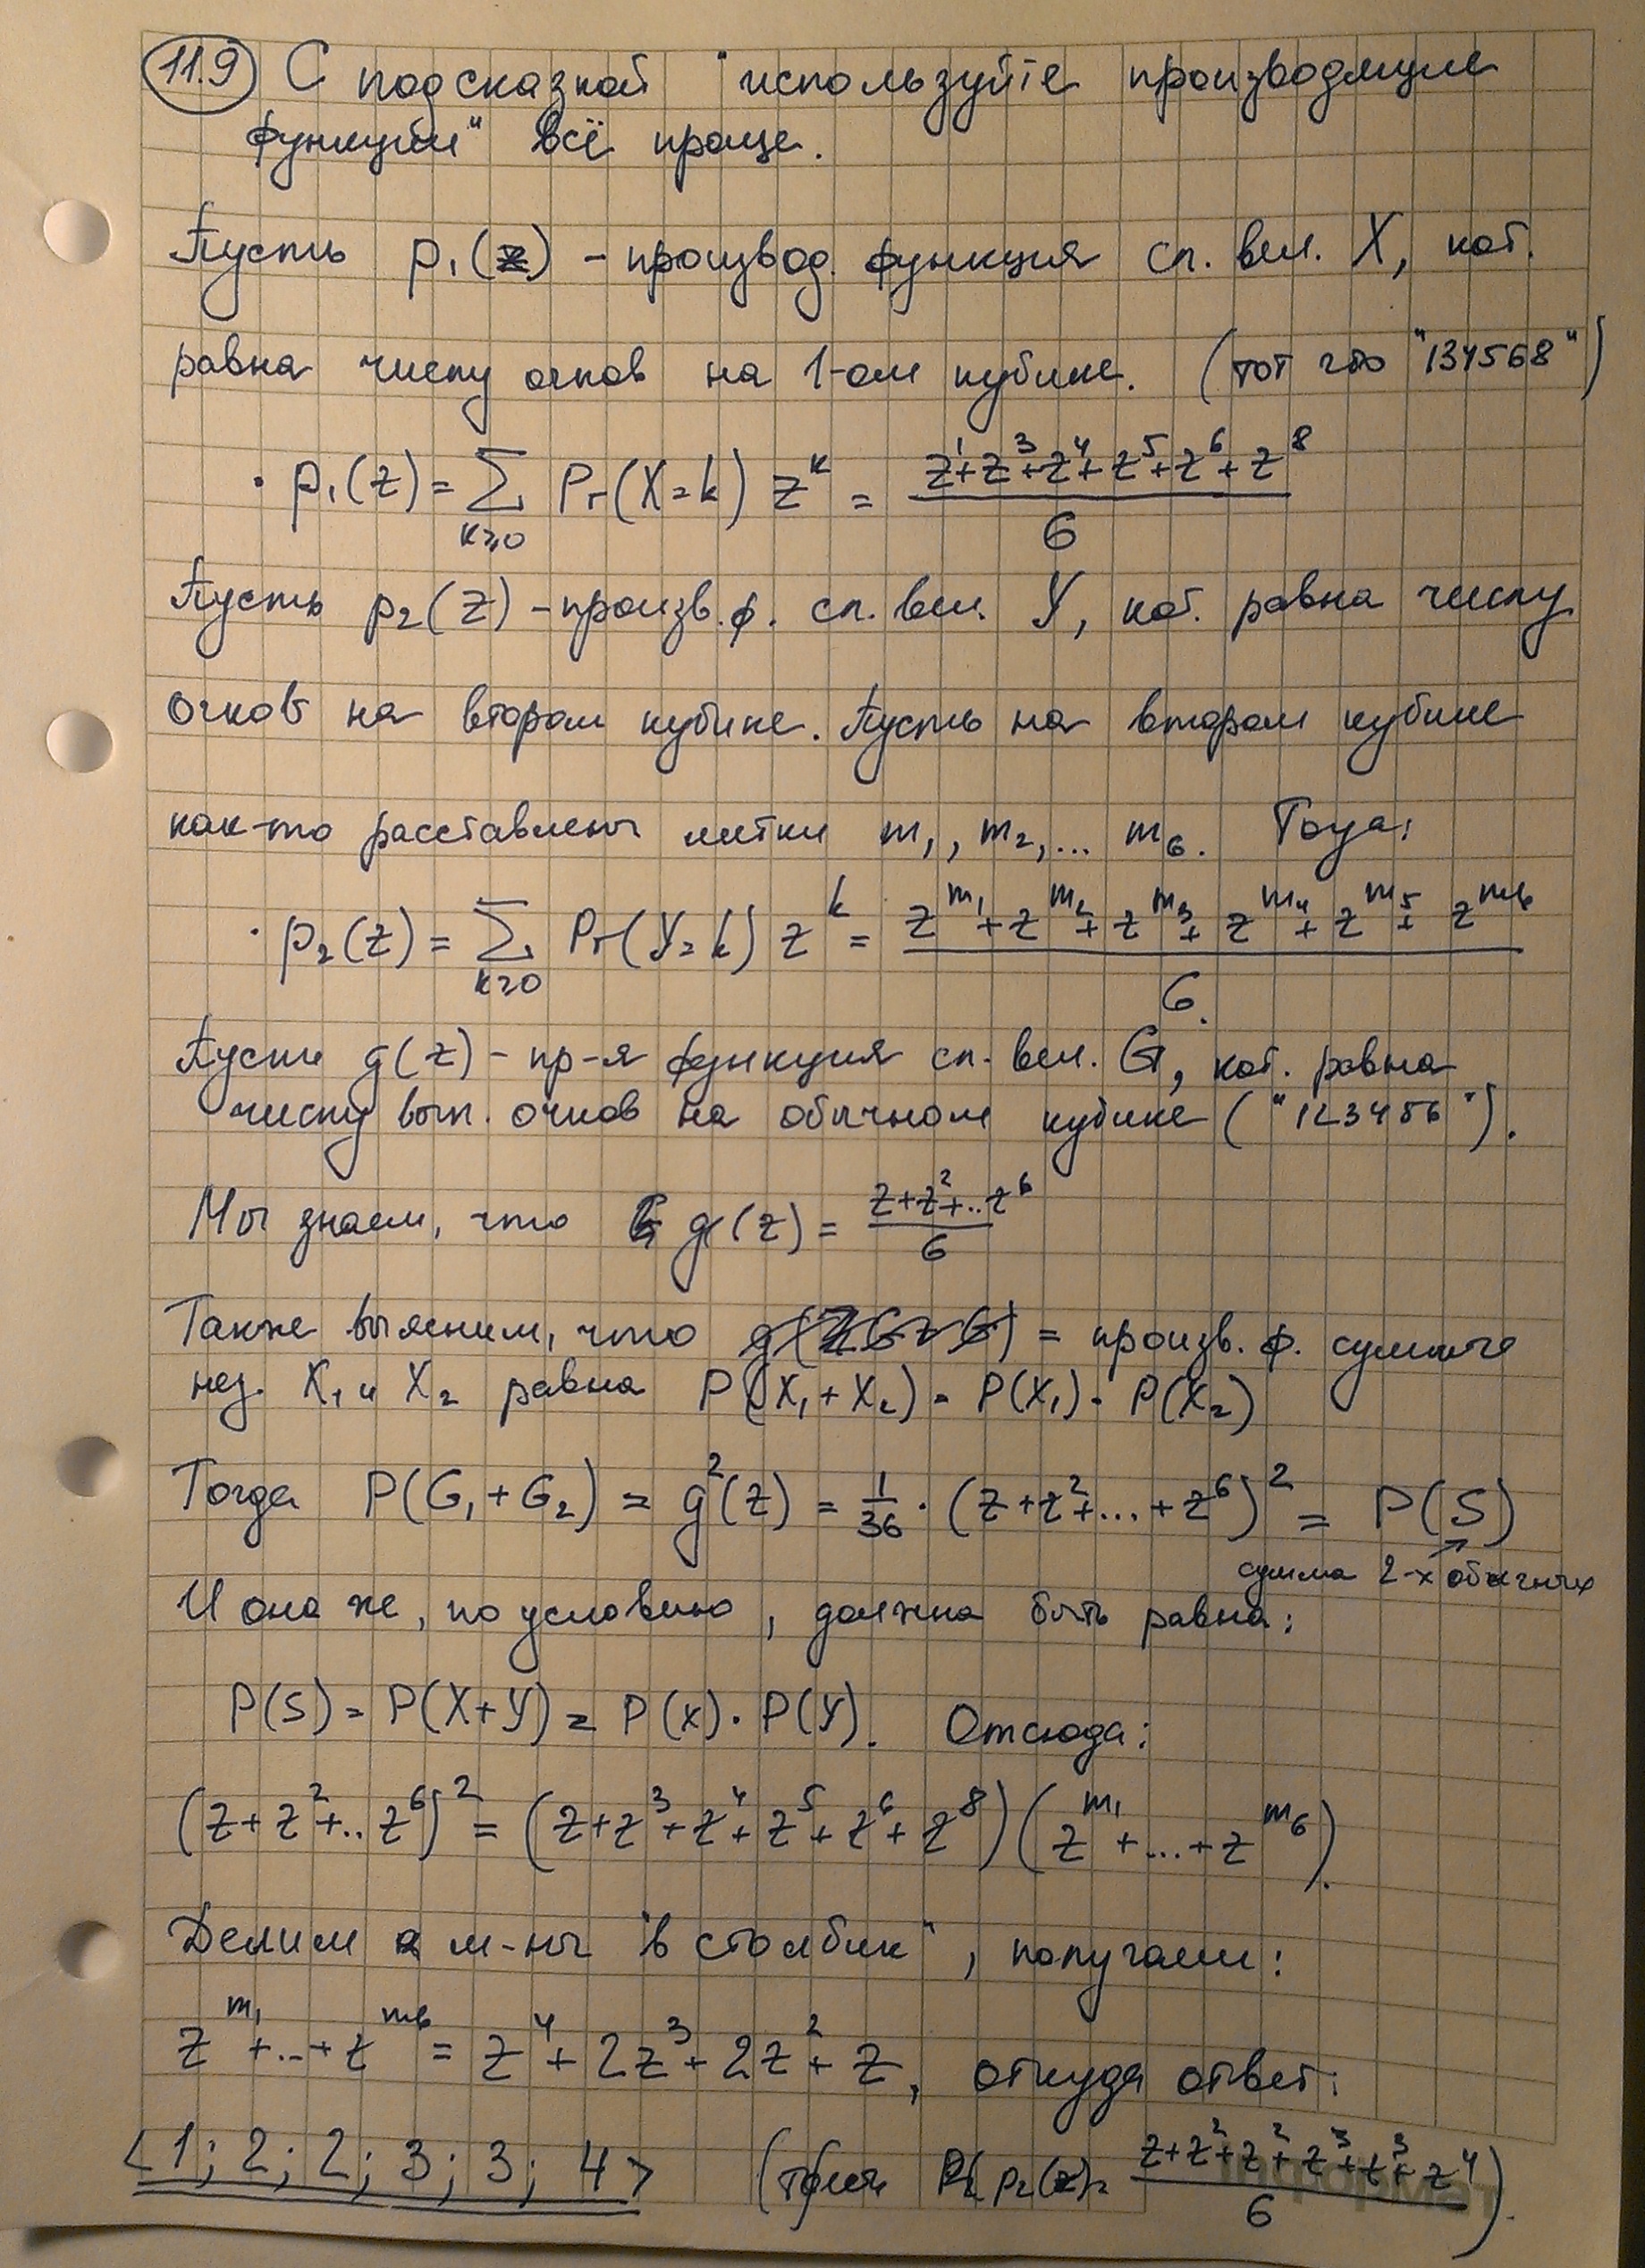 11.9 С подсказкой "используйте производящие
функции" всё проще.
Пусть p₁(z) - производ. функция сл. вел. X, кот.
равна числу очков на 1-ом кубике. (тот что "134568")
· p₁(z) = Σ_{k≥0} Pr(X=k) z^k = (z¹+z³+z⁴+z⁵+z⁶+z⁸)/6
Пусть p₂(z) - произв. ф. сл. вел. Y, кот. равна числу
очков на втором кубике. Пусть на втором кубике
как-то расставлены метки m₁, m₂, ... m₆. Тогда:
· p₂(z) = Σ_{k≥0} Pr(Y=k) z^k = (z^{m₁}+z^{m₂}+z^{m₃}+z^{m₄}+z^{m₅}+z^{m₆})/6.
Пусть g(z) - пр-я функция сл. вел. G, кот. равна
числу вып. очков на обычном кубике ("123456").
Мы знаем, что g(z) = (z+z²+..z⁶)/6
Также выясним, что = произв. ф. сумме
нез. X₁ и X₂ равна P(X₁+X₂) = P(X₁)·P(X₂)
Тогда P(G₁+G₂) = g²(z) = 1/36 · (z+z²+...+z⁶)² = P(S)
сумма 2-х обычных
И она же, по условию, должна быть равна:
P(S) = P(X+Y) = P(X)·P(Y). Отсюда:
(z+z²+..z⁶)² = (z+z³+z⁴+z⁵+z⁶+z⁸)(z^{m₁}+...+z^{m₆}).
Делим м-ны "в столбик", получаем:
z^{m₁}+..+z^{m₆} = z⁴+2z³+2z²+z, откуда ответ:
<1; 2; 2; 3; 3; 4> p₂(z)= (z+z²+z²+z³+z³+z⁴)/6).
информат